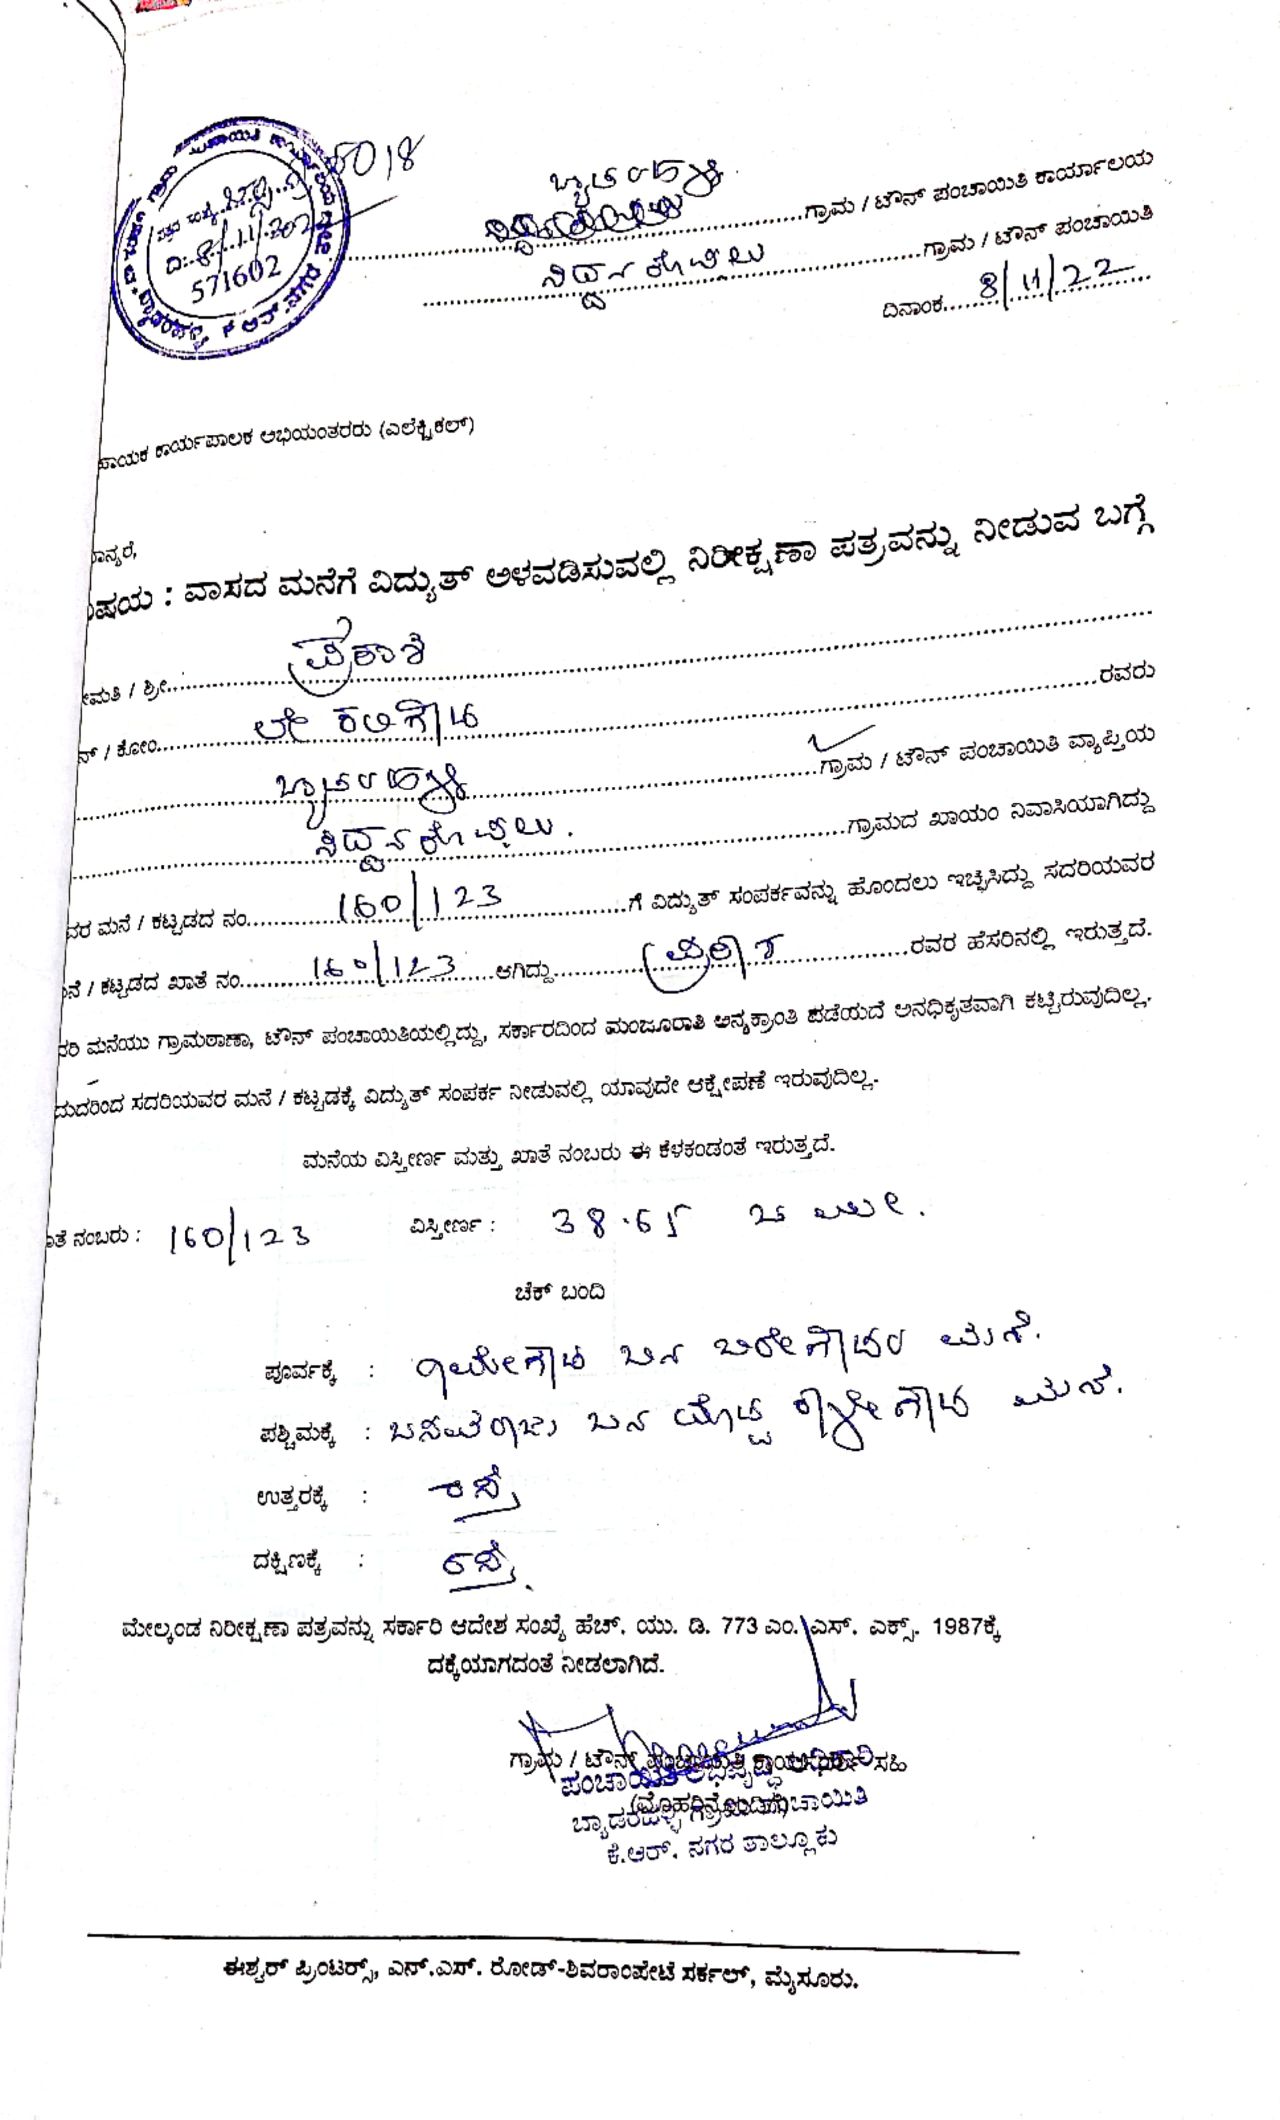 5018
ದಿ:- 8/11/202
571602
ಬ್ಯಾಡರಹಳ್ಳಿ ಗ್ರಾಮ / ಟೌನ್ ಪಂಚಾಯಿತಿ ಕಾರ್ಯಾಲಯ
ಗ್ರಾಮ / ಟೌನ್ ಪಂಚಾಯಿತಿ
ದಿನಾಂಕ 8/11/22
ಹಾಯಕ ಕಾರ್ಯಪಾಲಕ ಅಭಿಯಂತರರು (ಎಲೆಕ್ಟ್ರಿಕಲ್)
ಮಾನ್ಯರೆ,
ವಿಷಯ : ವಾಸದ ಮನೆಗೆ ವಿದ್ಯುತ್ ಅಳವಡಿಸುವಲ್ಲಿ ನಿರೀಕ್ಷಣಾ ಪತ್ರವನ್ನು ನೀಡುವ ಬಗ್ಗೆ
ೀಮತಿ / ಶ್ರೀ ಪ್ರಕಾಶ
ನ್ / ಕೋಂ ಲೇ ಕರಿಗೌಡ ರವರು
ಬ್ಯಾಡರಹಳ್ಳಿ ಗ್ರಾಮ / ಟೌನ್ ಪಂಚಾಯಿತಿ ವ್ಯಾಪ್ತಿಯ
ಗ್ರಾಮದ ಖಾಯಂ ನಿವಾಸಿಯಾಗಿದ್ದು
ವರ ಮನೆ / ಕಟ್ಟಡದ ನಂ 160/123 ಗೆ ವಿದ್ಯುತ್ ಸಂಪರ್ಕವನ್ನು ಹೊಂದಲು ಇಚ್ಛಿಸಿದ್ದು ಸದರಿಯವರ
ನೆ / ಕಟ್ಟಡದ ಖಾತೆ ನಂ 160/123 ಆಗಿದ್ದು ರವರ ಹೆಸರಿನಲ್ಲಿ ಇರುತ್ತದೆ.
ದರಿ ಮನೆಯು ಗ್ರಾಮಠಾಣಾ, ಟೌನ್ ಪಂಚಾಯಿತಿಯಲ್ಲಿದ್ದು, ಸರ್ಕಾರದಿಂದ ಮಂಜೂರಾತಿ ಅನ್ಯಕ್ರಾಂತಿ ಪಡೆಯದೆ ಅನಧಿಕೃತವಾಗಿ ಕಟ್ಟಿರುವುದಿಲ್ಲ.
ದುದರಿಂದ ಸದರಿಯವರ ಮನೆ / ಕಟ್ಟಡಕ್ಕೆ ವಿದ್ಯುತ್ ಸಂಪರ್ಕ ನೀಡುವಲ್ಲಿ ಯಾವುದೇ ಆಕ್ಷೇಪಣೆ ಇರುವುದಿಲ್ಲ.
ಮನೆಯ ವಿಸ್ತೀರ್ಣ ಮತ್ತು ಖಾತೆ ನಂಬರು ಈ ಕೆಳಕಂಡಂತೆ ಇರುತ್ತದೆ.
ತೆ ನಂಬರು : 160/123 ವಿಸ್ತೀರ್ಣ : 38.65 ಚ ಮೀ.
ಚೆಕ್ ಬಂದಿ
ಪೂರ್ವಕ್ಕೆ : ಬಿನ್ ಮನೆ.
ಪಶ್ಚಿಮಕ್ಕೆ : ಬಸವರಾಜು ಬಿನ್ ದೊಡ್ಡ ಕಾಳೇಗೌಡ ಮನೆ.
ಉತ್ತರಕ್ಕೆ : ರಸ್ತೆ
ದಕ್ಷಿಣಕ್ಕೆ : ರಸ್ತೆ.
ಮೇಲ್ಕಂಡ ನಿರೀಕ್ಷಣಾ ಪತ್ರವನ್ನು ಸರ್ಕಾರಿ ಆದೇಶ ಸಂಖ್ಯೆ ಹೆಚ್. ಯು. ಡಿ. 773 ಎಂ. ಎಸ್. ಎಕ್ಸ್. 1987ಕ್ಕೆ
ದಕ್ಕೆಯಾಗದಂತೆ ನೀಡಲಾಗಿದೆ.
ಗ್ರಾಮ / ಟೌನ್ ಪಂಚಾಯಿತಿ ಸಹಿ
ಪಂಚಾಯಿತಿ ಅಭಿವೃದ್ಧಿ ಅಧಿಕಾರಿ
(ಮೊಹರಿನೊಂದಿಗೆ)
ಬ್ಯಾಡರಹಳ್ಳಿ ಗ್ರಾಮ ಪಂಚಾಯಿತಿ
ಕೆ.ಆರ್. ನಗರ ತಾಲ್ಲೂಕು
ಈಶ್ವರ್ ಪ್ರಿಂಟರ್ಸ್, ಎನ್.ಎಸ್. ರೋಡ್-ಶಿವರಾಂಪೇಟೆ ಸರ್ಕಲ್, ಮೈಸೂರು.